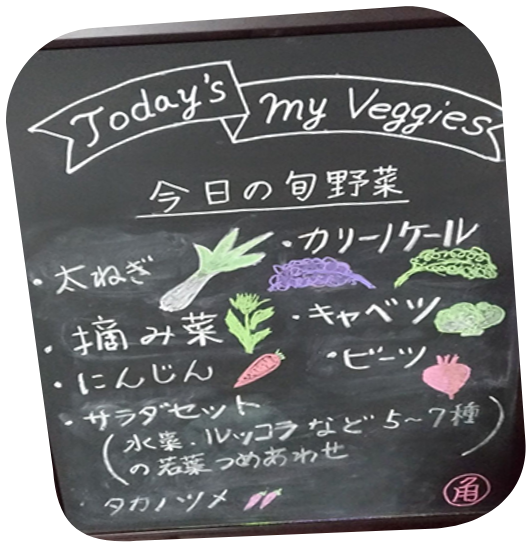 Today's my Veggies
今日の旬野菜
・太ねぎ
・カリーノケール
・摘み菜
・キャベツ
・にんじん
・ビーツ
・サラダセット
(水菜・ルッコラなど5~7種
の若葉つめあわせ)
・タカノツメ
角